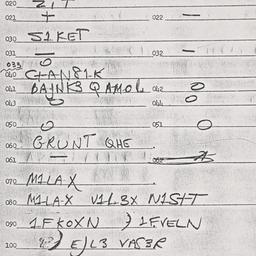 020 217
021 + 022 —
030 S1KET
031 — 032 —
033 O
040 C+AN81K
041 BAJNK3 QAMOL 042 O
043 O 044 O
050 O 051 O
060 GRUNT QHE
061 —
070 M1LAX
080 M1LAX V1L3X N1S+T
090 1FKOXN ) 1FVELN
100 EJL3 VAS3R